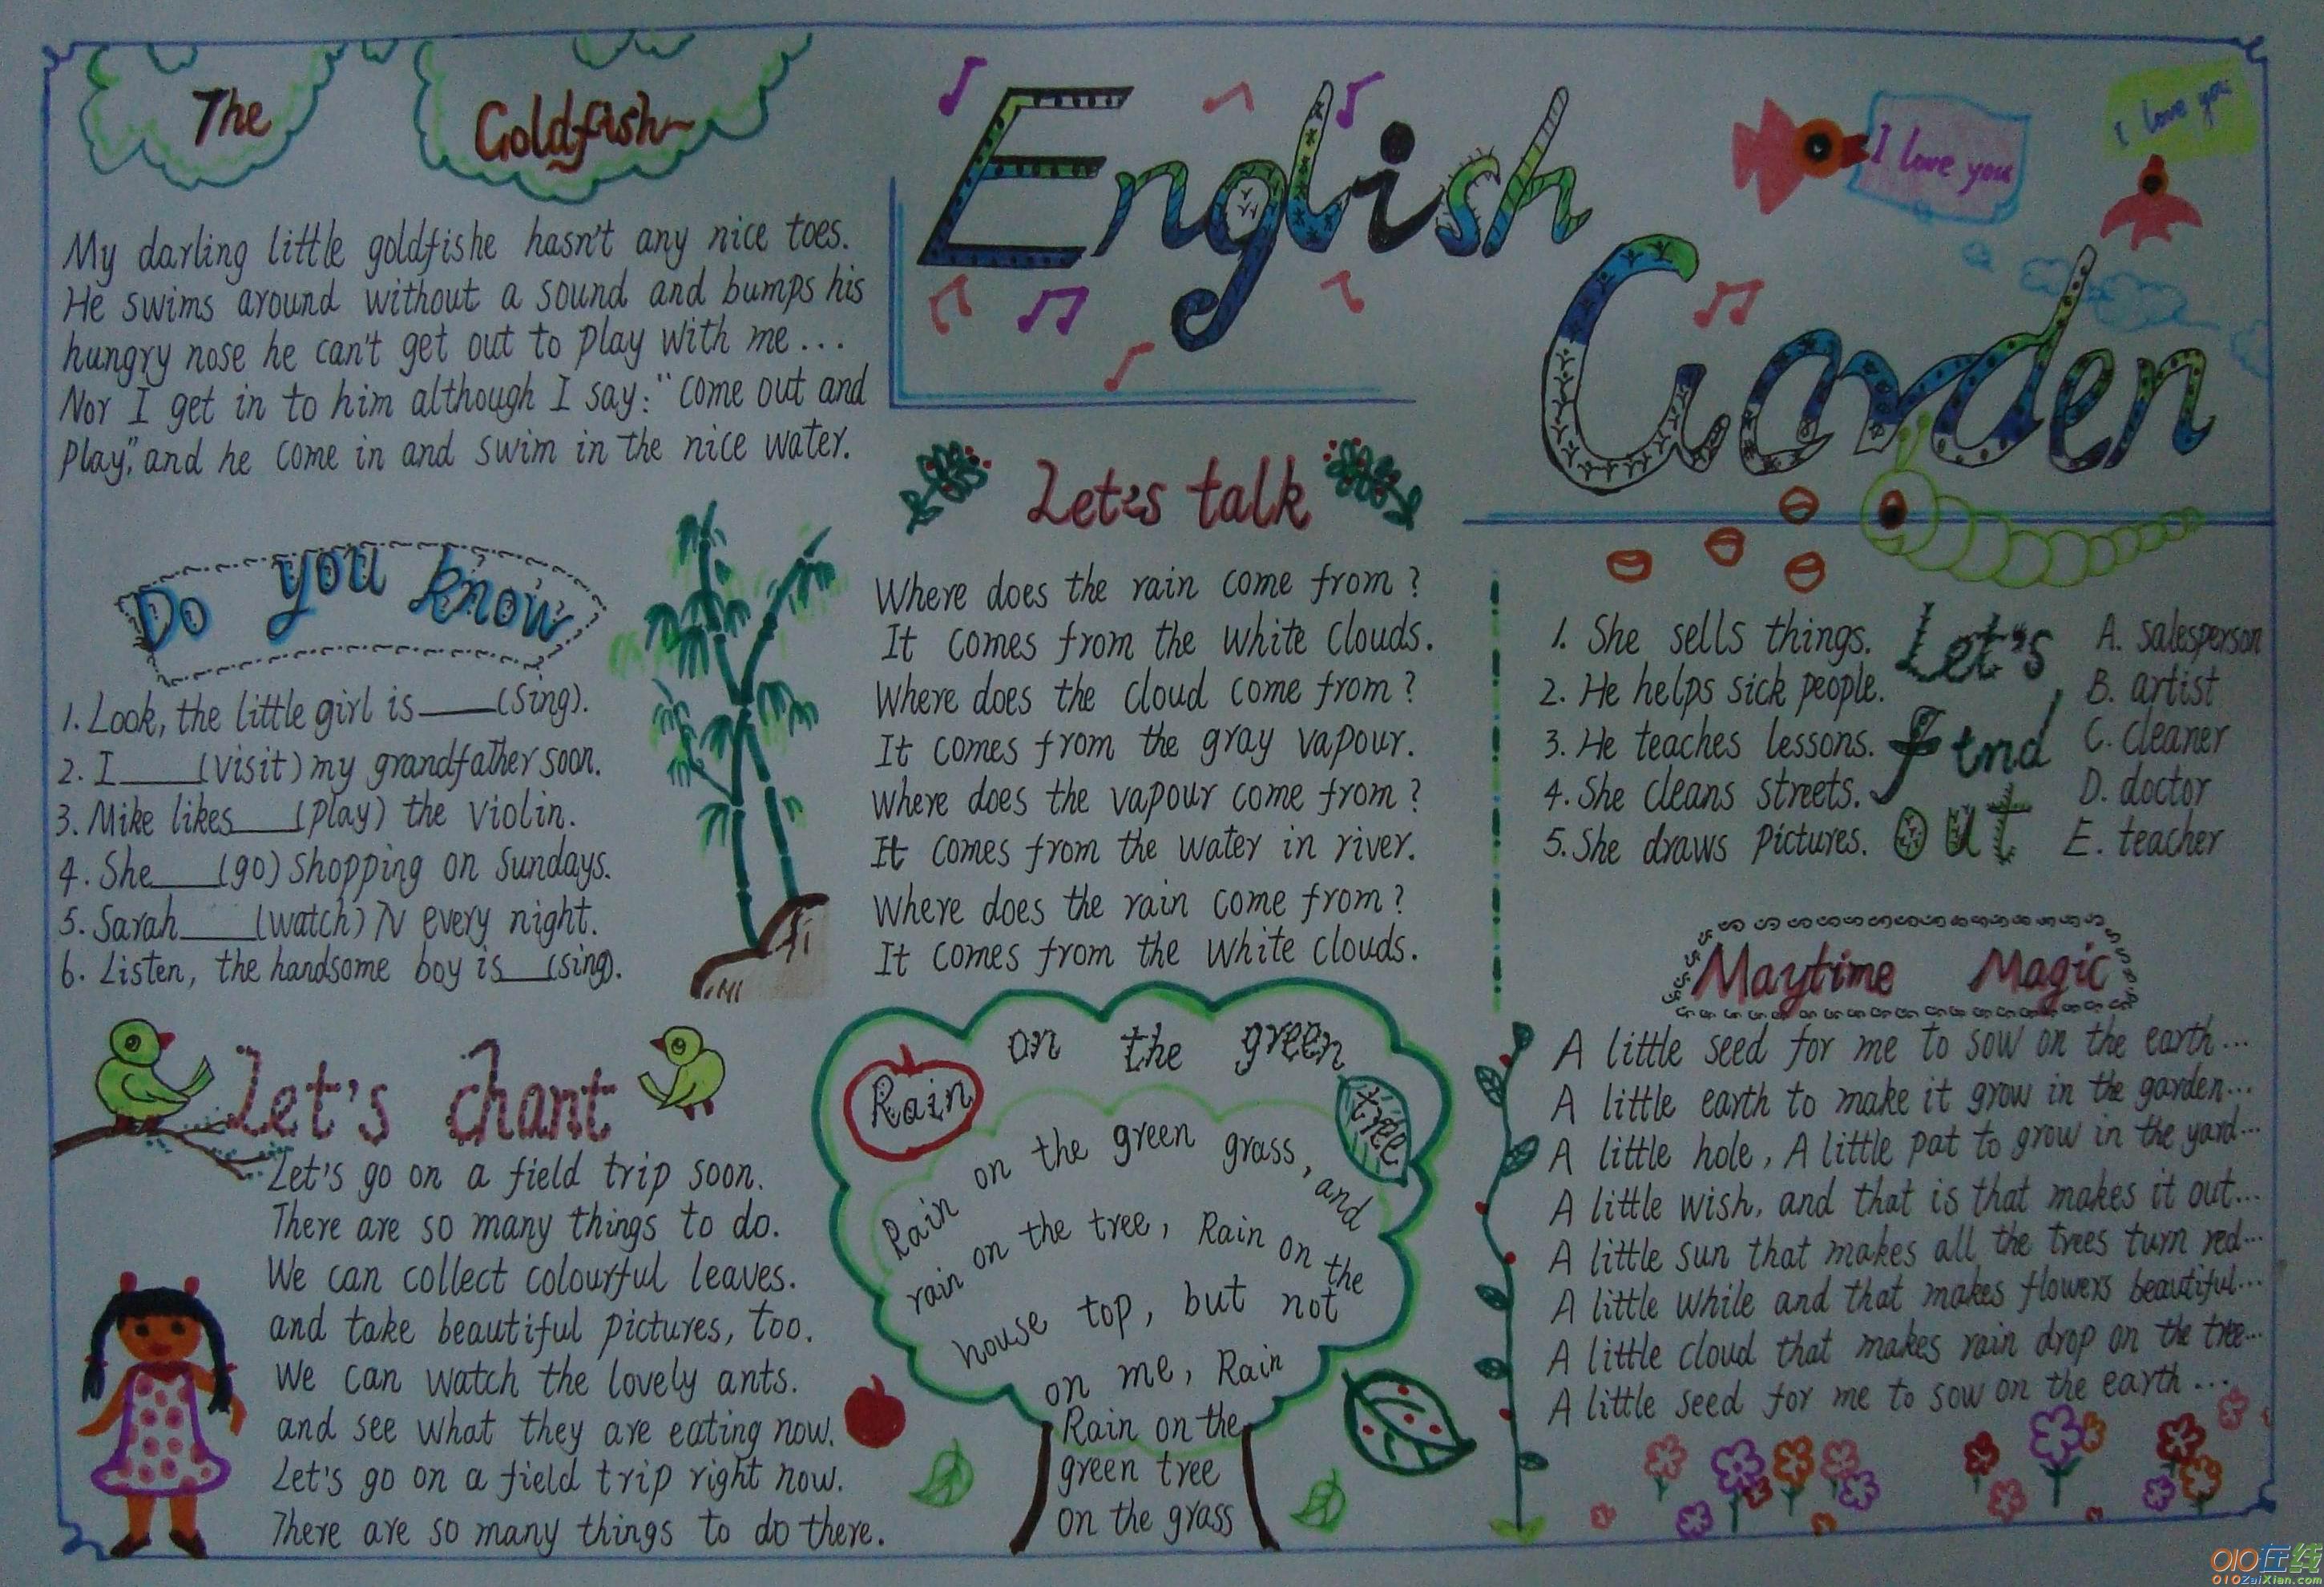 The Goldfish
My darling little goldfishe hasn't any nice toes.
He swims around without a sound and bumps his
hungry nose he can't get out to play with me...
Nor I get in to him although I say: "come out and
Play", and he come in and swim in the nice water.
English
Garden
I love you
I love you
Do you know
1. Look, the little girl is____(Sing).
2. I____(visit) my grandfather soon.
3. Mike likes____(play) the violin.
4. She____(go) shopping on Sundays.
5. Sarah____(watch) TV every night.
6. Listen, the handsome boy is___(sing).
Let's talk
Where does the rain come from?
It comes from the white clouds.
Where does the cloud come from?
It comes from the gray vapour.
Where does the vapour come from?
It comes from the water in river.
Where does the rain come from?
It comes from the white clouds.
Let's
Find
out
1. She sells things.
2. He helps sick people.
3. He teaches lessons.
4. She cleans streets.
5. She draws pictures.
A. salesperson
B. artist
C. cleaner
D. doctor
E. teacher
Let's chant
Let's go on a field trip soon.
There are so many things to do.
We can collect colourful leaves.
and take beautiful pictures, too.
We can watch the lovely ants.
and see what they are eating now.
Let's go on a field trip right now.
There are so many things to do there.
Rain on the green tree
Rain on the green grass, and
rain on the tree, Rain on the
house top, but not
on me, Rain
Rain on the
green tree
on the grass
Maytime Magic
A little seed for me to sow on the earth...
A little earth to make it grow in the garden...
A little hole, A little pat to grow in the yard...
A little wish, and that is that makes it out...
A little sun that makes all the trees turn red...
A little while and that makes flowers beautiful...
A little cloud that makes rain drop on the tree...
A little seed for me to sow on the earth...
010在线
010ZaiXian.com